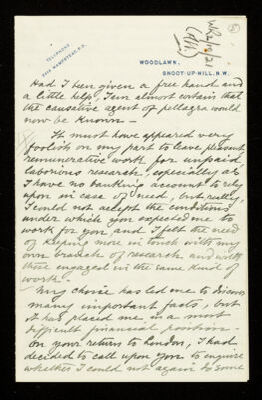 TELEPHONE
HAMPSTEAD, P.O.
WOODLAWN,
SHOOT-UP-HILL, N.W.
Had I been given a free hand and
a little help, I am almost certain that
the causative agent of pellagra would
now be known —
It must have appeared very
foolish on my part to leave pleasant
remunerative work for unpaid,
laborious research, especially as
I have no banking account to rely
upon in case of need, but really,
I could not accept the conditions
under which you expected me to
work for you and I felt the need
of keeping more in touch with my
own branch of research and with
those engaged in the same kind of
work —
My choice has led me to discover
many important facts, but
it has placed me in a most
difficult financial position —
On your return to London, I had
decided to call upon you to enquire
whether I could not again do some